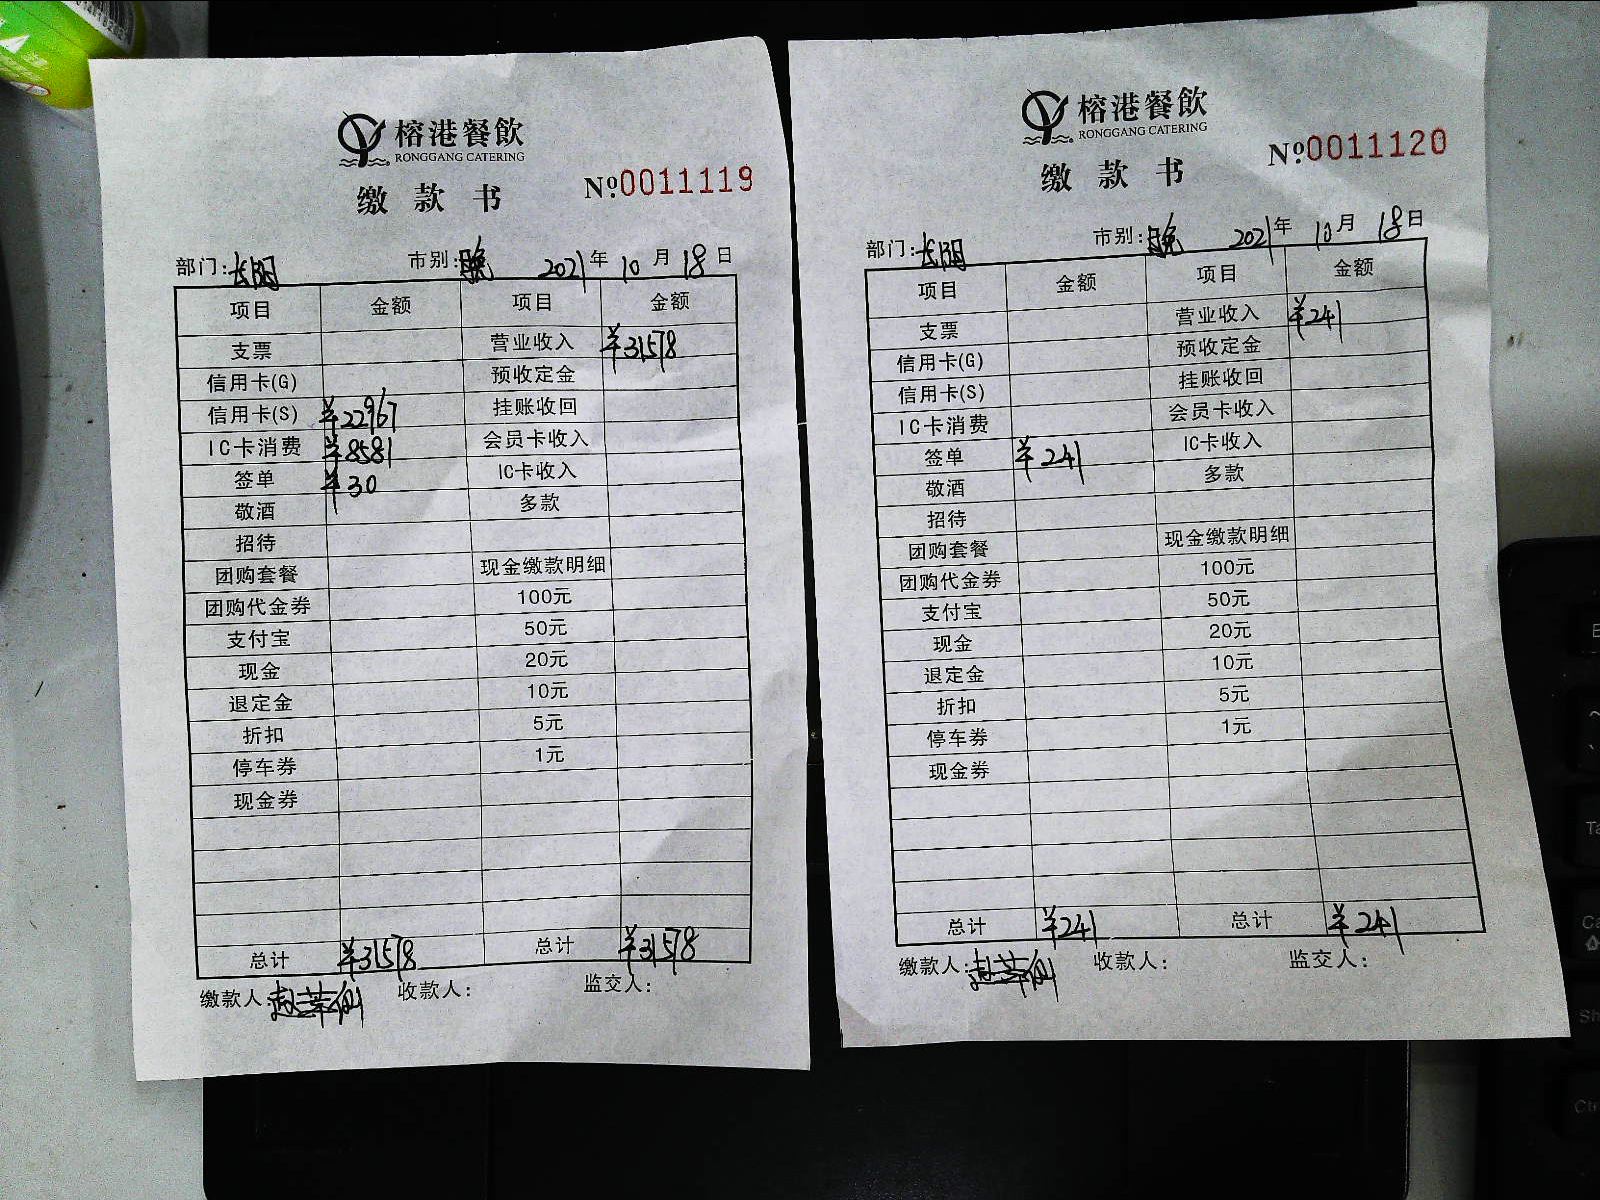 榕港餐飲
RONGGANG CATERING
缴款书
№0011119
部门:长阳 市别:晚 2021年10月18日
项目 金额 项目 金额
支票 营业收入 ¥31578
信用卡(G) 预收定金
信用卡(S) ¥22967 挂账收回
IC卡消费 ¥8581 会员卡收入
签单 ¥30 IC卡收入
敬酒 多款
招待
团购套餐 现金缴款明细
团购代金券 100元
支付宝 50元
现金 20元
退定金 10元
折扣 5元
停车券 1元
现金券
总计 ¥31578 总计 ¥31578
缴款人: 收款人: 监交人:
榕港餐飲
RONGGANG CATERING
缴款书
№0011120
部门:长阳 市别:晚 2021年10月18日
项目 金额 项目 金额
支票 营业收入 ¥241
信用卡(G) 预收定金
信用卡(S) 挂账收回
IC卡消费 会员卡收入
签单 ¥241 IC卡收入
敬酒 多款
招待
团购套餐 现金缴款明细
团购代金券 100元
支付宝 50元
现金 20元
退定金 10元
折扣 5元
停车券 1元
现金券
总计 ¥241 总计 ¥241
缴款人: 收款人: 监交人: